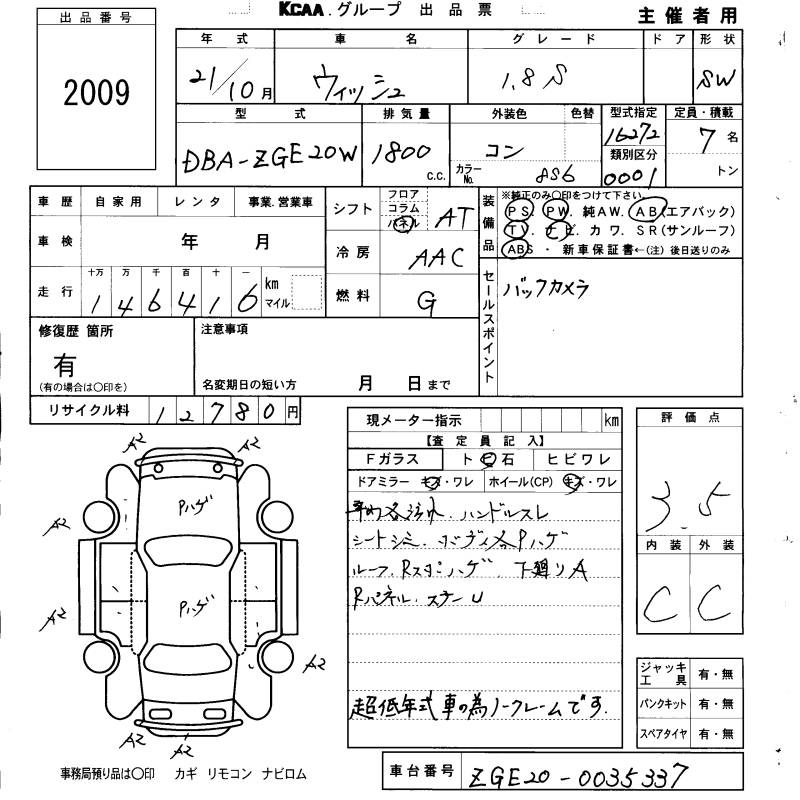 KCAA.グループ 出品票
主催者用
出品番号
2009
年式 車名 グレード ドア 形状
21/10月 ウィッシュ 1.8S SW
型式 排気量 外装色 色替 型式指定 定員・積載
DBA-ZGE20W 1800 c.c. コン 16272 7名
カラーNo. 8S6 類別区分 0001 トン
車歴 自家用 レンタ 事業.営業車
シフト フロア コラム パネル AT
装備品 ※純正のみ〇印をつけて下さい
PS. PW. 純AW. AB(エアバック)
TV. ナビ. カワ. SR(サンルーフ)
ABS・新車保証書←(注) 後日送りのみ
車検 年 月
冷房 AAC
走行 十万 万 千 百 十 一 km マイル
146416
燃料 G
セールスポイント
バックカメラ
修復歴 箇所
有
(有の場合は〇印を)
注意事項
名変期日の短い方 月 日まで
リサイクル料 12780円
現メーター指示 km
【査定員記入】
Fガラス トビ石 ヒビワレ
ドアミラー キズ・ワレ ホイール(CP) キズ・ワレ
ハンドルスレ
シートシミ. ボディ各Pハゲ
ルーフ. ハゲ. 下廻りA
Rパネル. ステーU
超低年式車の為ノークレームです.
評価点
3.5
内装 外装
C C
ジャッキ工具 有・無
パンクキット 有・無
スペアタイヤ 有・無
A2 A2
Pハゲ
A2
Pハゲ
A2
A2
A2 A2
事務局預り品は〇印 カギ リモコン ナビロム
車台番号 ZGE20-0035337